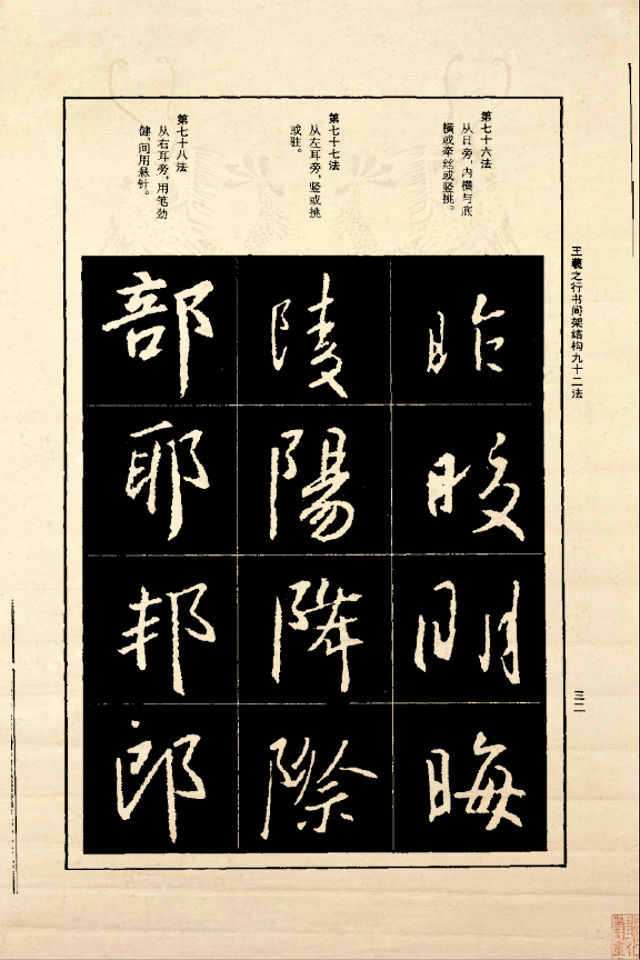 王羲之行书间架结构九十二法
第七十六法
从日旁，内横与底
横或牵丝或竖挑。
第七十七法
从左耳旁，竖或挑
或驻。
第七十八法
从右耳旁，用笔劲
健，间用悬针。
昨
晙
明
晦
陵
陽
降
際
部
耶
邦
郎
三二